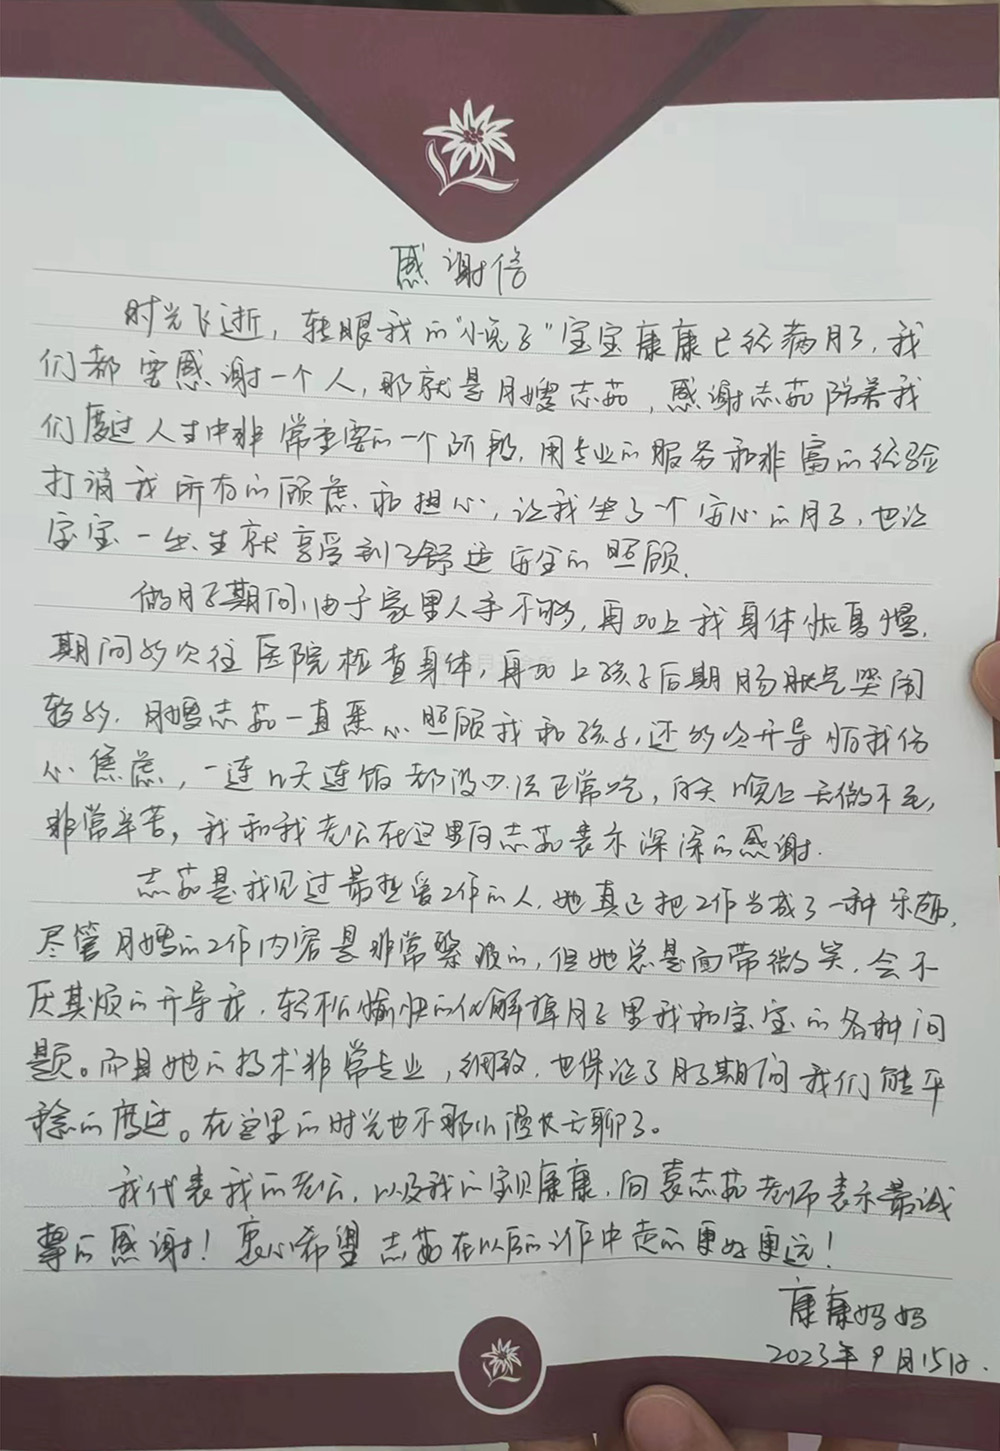 感谢信
时光飞逝，转眼我的“小兔子”宝宝康康已经满月了，我
们都要感谢一个人，那就是月嫂志茹，感谢志茹陪着我
们度过人生中非常重要的一个阶段，用专业的服务和丰富的经验
打消我所有的顾虑和担心，让我坐了一个安心的月子，也让
宝宝一出生就享受到了舒适安全的照顾。
做月子期间，由于家里人手不够，再加上我身体恢复慢，
期间多次往医院检查身体，再加上孩子后期肠胀气哭闹
较多，月嫂志茹一直悉心照顾我和孩子，还多次开导怕我伤
心焦虑，一连几天连饭都没办法正常吃，白天晚上云做不完，
非常辛苦，我和我老公在这里向志茹表示深深的感谢.
志茹是我见过最热爱工作的人，她真正把工作当成了一种乐趣，
尽管月嫂的工作内容是非常繁琐的，但她总是面带微笑，会不
厌其烦的开导我，轻松愉快的化解掉月子里我和宝宝的各种问
题。而且她的技术非常专业，细致，也保证了月子期间我们能平
稳的度过。在这里的时光也不那么漫长无聊了。
我代表我的老公，以及我的宝贝康康，向袁志茹老师表示最诚
挚的感谢！衷心希望志茹在以后的工作中走的更好更远！
康康妈妈
2023年9月15日.